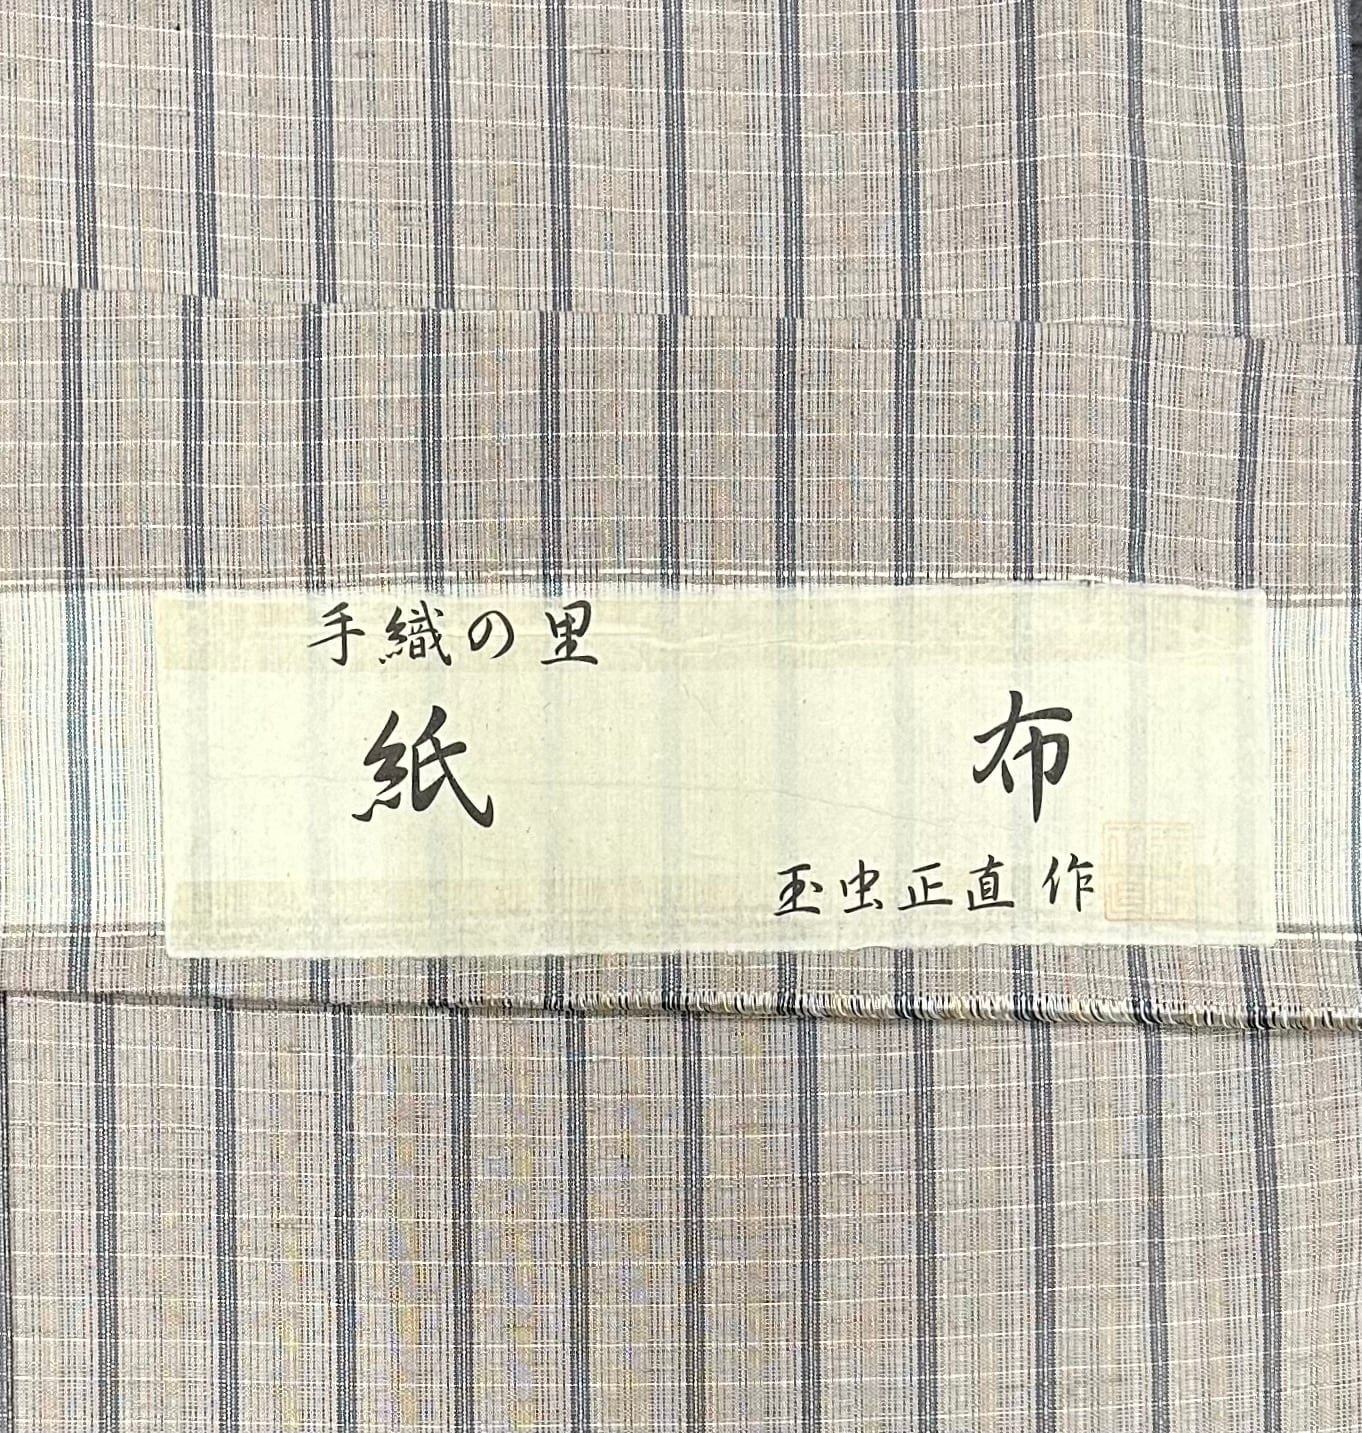 手織の里
紙布
玉虫正直作